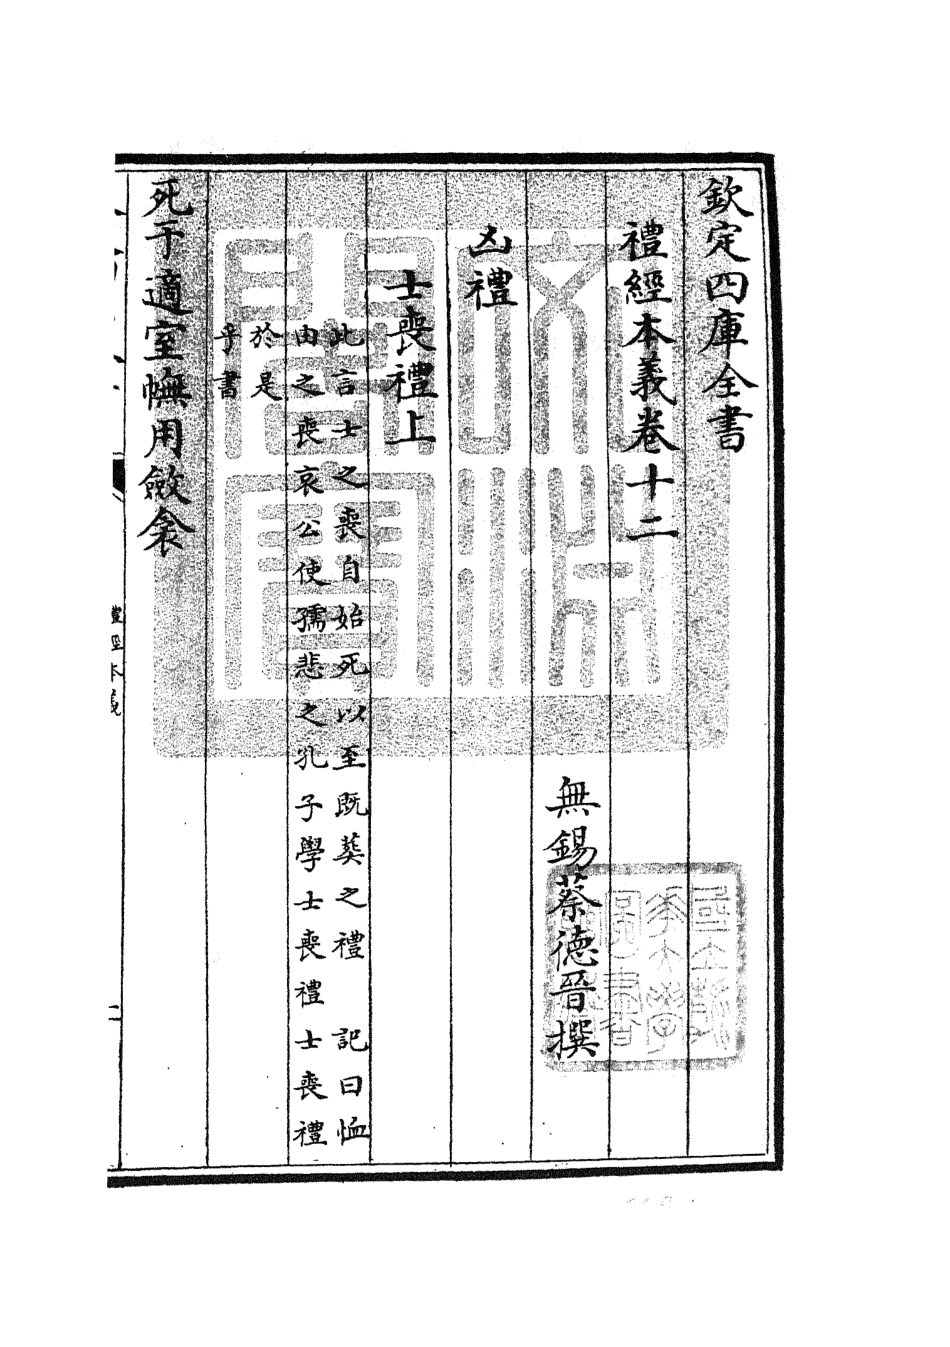 欽定四庫全書
禮經本義卷十二
無錫蔡德晉撰
凶禮
士喪禮上
此言士之喪自始死以至既葬之禮　記曰恤
由之喪哀公使孺悲之孔子學士喪禮士喪禮
於是
乎書
死于適室幠用斂衾
禮經本義